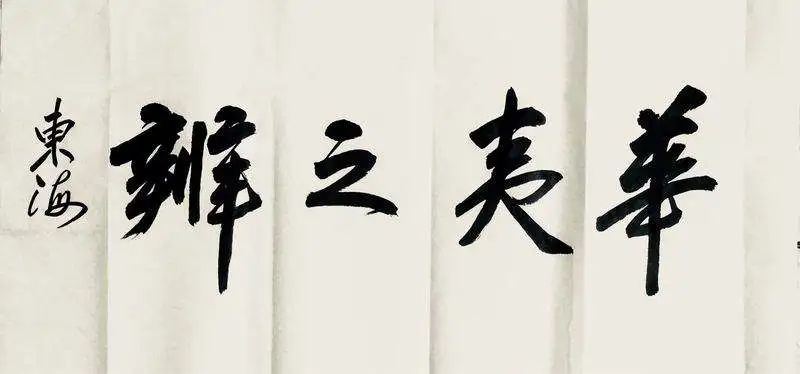 華夷之辨
東海